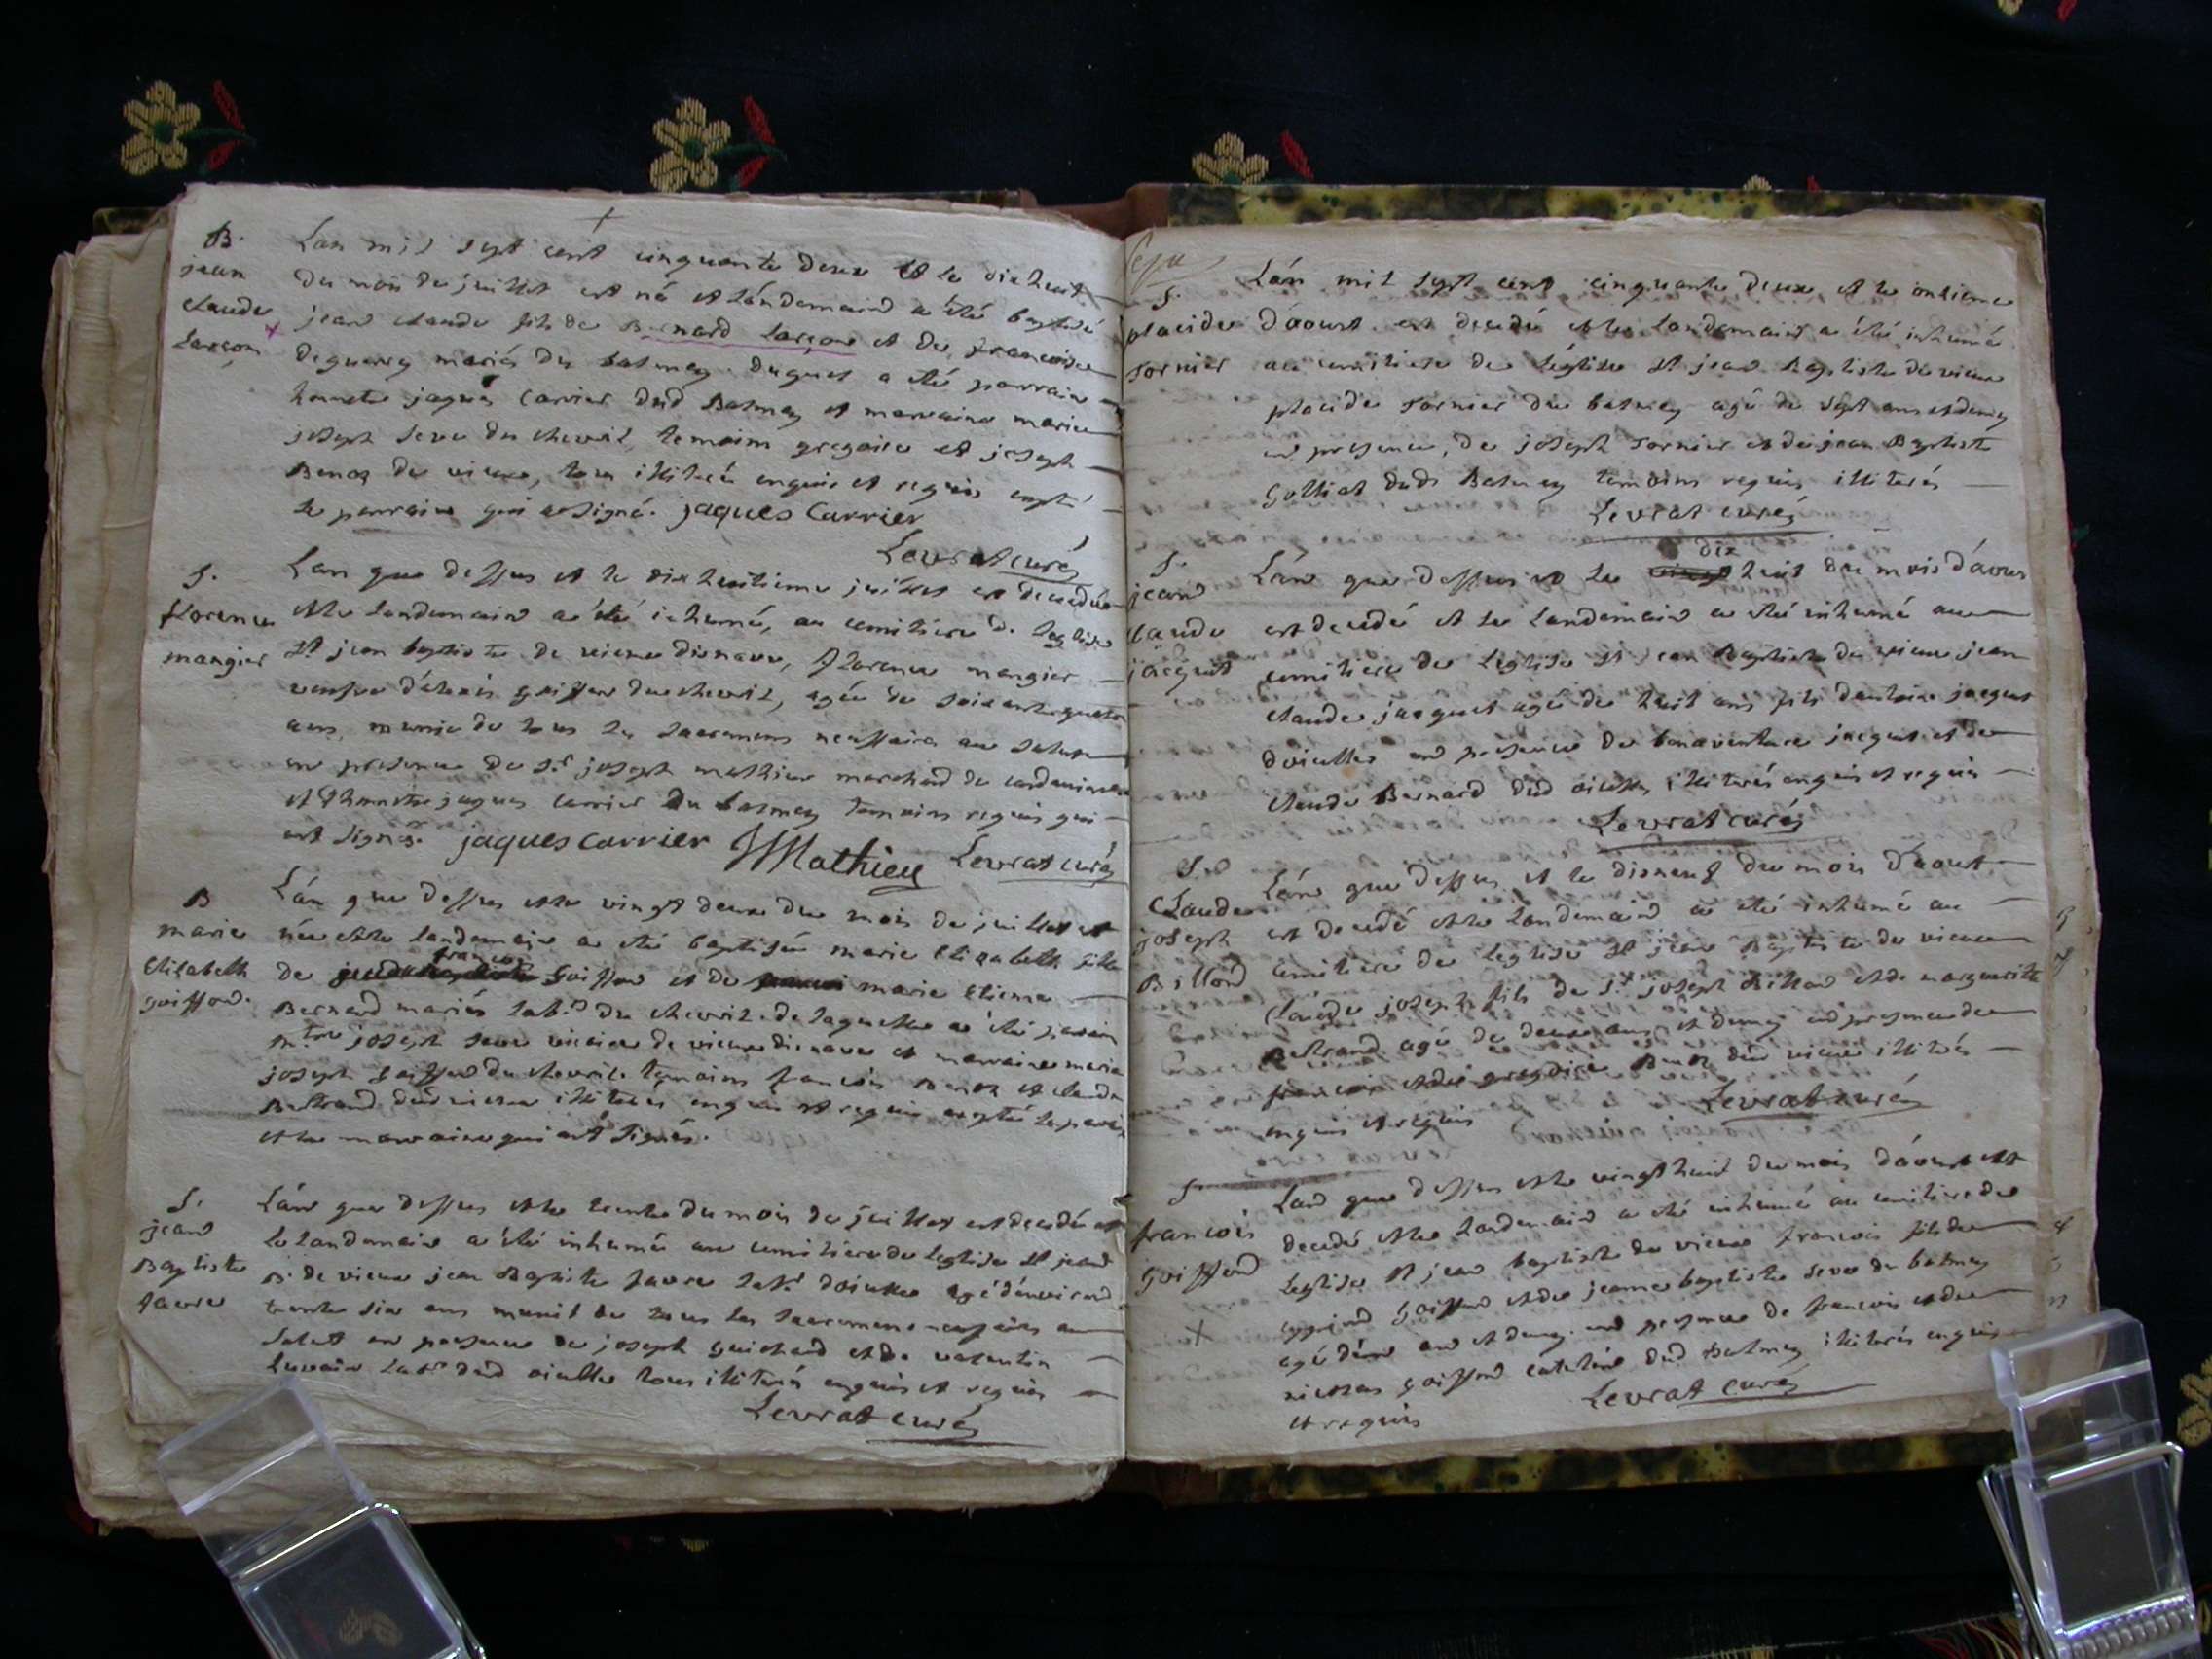 B.
jean
claude
Larçon
Lan mil sept cent cinquante deux et le dixhuit
du mois de juillet est né et lándemaind a été baptisé
jean claude fils de Bernard Larçon et de francoise
deguerry mariés du balmay. duquel a été parrain
honnete jaques Carrier dud Balmay et marraine marie
joseph seve du chevril, temoins gregoire et joseph
Benoz de vieux, tous illiterés enquis et requis excepté
le parrain qui a signé. jaques Carrier
Levrat curé
S.
florence
mangier
Lan que dessus et le dix huitieme juillet est decedée
et le landemain a été inhumé, au cemitière de leglise
St jean baptiste de vieux disnave, florence mangier
veusve goiffon du chevril, agée de soixante quatre
ans, munie de tous les sacremens necessaires au salut
en presence de sr joseph mathieu marchand de
et honnete jaques carrier du balmay temoins requis qui
ont signés. jaques carrier JMathieu Levrat curé
B
marie
Elisabeth
goiffond.
Lán que dessus et le vingt deux du mois de juillet est
née et le landemain a été baptisée marie Elizabeth fille
de francois goiffon et de marie Etienne
Bernard mariés lab.rd du chevril. de laquelle a été parrain
m.tre joseph seve vicaire de vieux disnave et marraine marie
joseph goiffond du chevril. temoins francois Benoz et claude
Bertrand dud vieux illiterés enquis et requis excepté le parrain
et la marraine qui ont signés.
S.
jean
Baptiste
favre
Lán que dessus et le trente du mois de juillet est decedé et
le landemain a été inhumé au cemitiere de leglise St jean
B. de vieux jean Baptiste favre lab.r doicelles agé dénvirond
trente six ans munit de tous les sacremens necessaires au
salut en presence de joseph guichard et de valentin
labr dud oicelles tous illiterés enquis et requis
Levrat curé
S.
placide
sornier
Lán mil sept cent cinquante deux et le onzieme
dáoust est decedé et le landemain a été inhumé
au cemitiere de léglise St jean Baptiste de vieux
placide sornier du balmey agé de sept ans et demy
en presence, de joseph sornier et de jean Baptiste
Golliat dud Balmey temoins requis illiterés
Levrat curé
S.
jean
claude
jacquet
Lán que dessus et le dix huit du mois dáoust
est decedé et le landemain a été inhumé au
cemitiere de leglise St jean Baptiste de vieux jean
claude jacquet agé de huit ans fils dantoine jacquet
doicelles en presence de bonaventure jacquet et de
claude Bernard dud oicelles illiterés enquis et requis
Levrat curé
S.
Claude
joseph
Billond
Lán que dessus et le dixneuf du mois dáoust
est decedé et le landemain a été inhumé au
cemitiere de leglise St jean Baptiste de vieux
claude joseph fils de sr joseph Billond et de marguerite
Bertrand agé de deux ans et demy en presence de
francois et de gregoire Benoz dud vieux illiterés
enquis et requis
Levrat curé
S.
francois
goiffond
Lan que dessus et le vingt huit du mois dáoust est
decedé et le landemain a été inhumé au cemitiere de
leglise St jean baptiste de vieux francois fils de
goiffond et de jeanne baptiste seve du balmey
agé dún an et demy. en presence de francois et de
nicolas goiffond dud Balmey illiterés enquis
et requis
Levrat curé